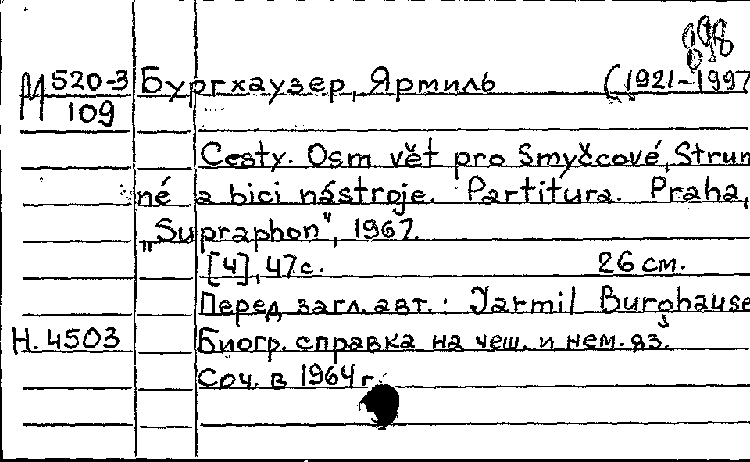 898
М 520-3 Бургхаузер, Ярмиль (1921-1997
109
Cesty. Osm vět pro Smyčcové, Strun
né a bici nástroje. Partitura. Praha,
„Supraphon", 1967.
[4], 47с. 26 см.
Перед загл. авт.: Jarmil Burghause
Н. 4503 Биогр. справка на чеш. и нем. яз.
Соч. в 1964 г.